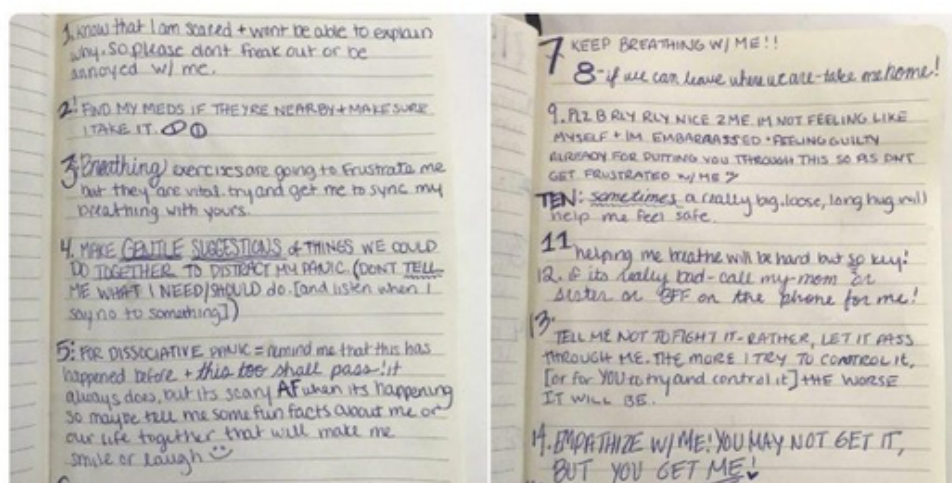 1. know that I am scared + wont be able to explain
why. so please dont freak out or be
annoyed w/ me.
2! FIND MY MEDS IF THEYRE NEARBY + MAKE SURE
I TAKE IT.
3. Breathing exercises are going to frustrate me
but they are vital. try and get me to sync my
breathing with yours.
4. MAKE GENTLE SUGGESTIONS of THINGS WE COULD
DO TOGETHER TO DISTRACT MY PANIC (DON'T TELL
ME WHAT I NEED/SHOULD do. [and listen when I
say no to something])
5: FOR DISSOCIATIVE PANIC = remind me that this has
happened before + this too shall pass! it
always does, but its scary AF when its happening
so maybe tell me some fun facts about me or
our life together that will make me
smile or laugh
7 KEEP BREATHING W/ ME!!
8 - if we can leave where we are - take me home!
9. PLZ B RLY RLY NICE 2 ME. IM NOT FEELING LIKE
MYSELF + IM EMBARRASSED + FEELING GUILTY
ALREADY FOR PUTTING YOU THROUGH THIS SO PLS DNT
GET FRUSTRATED W/ ME
TEN: sometimes a really big, loose, long hug will
help me feel safe.
11 helping me breathe will be hard but so key!
12. if its really bad - call my mom or
sister or BFF on the phone for me!
13. TELL ME NOT TO FIGHT IT - RATHER, LET IT PASS
THROUGH ME. THE MORE I TRY TO CONTROL IT,
[or for YOU to try and control it] + THE WORSE
IT WILL BE.
14. EMPATHIZE W/ ME! YOU MAY NOT GET IT,
BUT YOU GET ME!